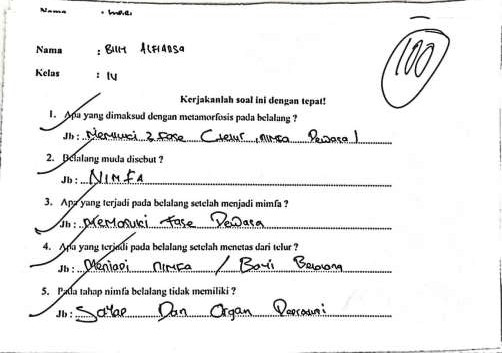 Nama : Billy Alfiansa
100
Kelas : IV
Kerjakanlah soal ini dengan tepat!
1. Apa yang dimaksud dengan metamorfosis pada belalang ?
Jb : Memiliki 3 Fase (telur, nimfa Dewasa)
2. Belalang muda disebut ?
Jb : NIMFA
3. Apa yang terjadi pada belalang setelah menjadi mimfa ?
Jb : Memasuki fase Dewasa
4. Apa yang terjadi pada belalang setelah menetas dari telur ?
Jb : Menjadi nimfa / Bayi Belalang
5. Pada tahap nimfa belalang tidak memiliki ?
Jb : Sayap Dan Organ